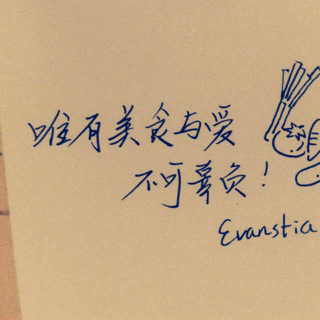 唯有美食与爱
不可辜负！
Evanstia